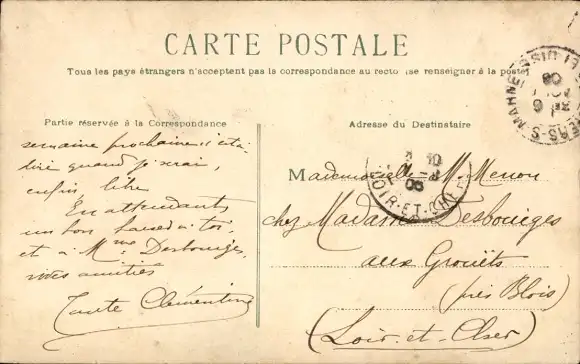 CARTE POSTALE
Tous les pays étrangers n'acceptent pas la correspondance au recto (se renseigner à la poste
Partie réservée à la Correspondance
semaine prochaine c'est à
dire quand j'irai,
enfin libre
En attendant
un bon baiser à toi,
et à Mme Desbouiges,
mes amitiés
Tante Clémentine
Adresse du Destinataire
Mademoiselle M. Menou
chez Madame Desbouiges
aux Grouëts
(près Blois)
(Loir-et-Cher)
LOIR-ET-CHER
08